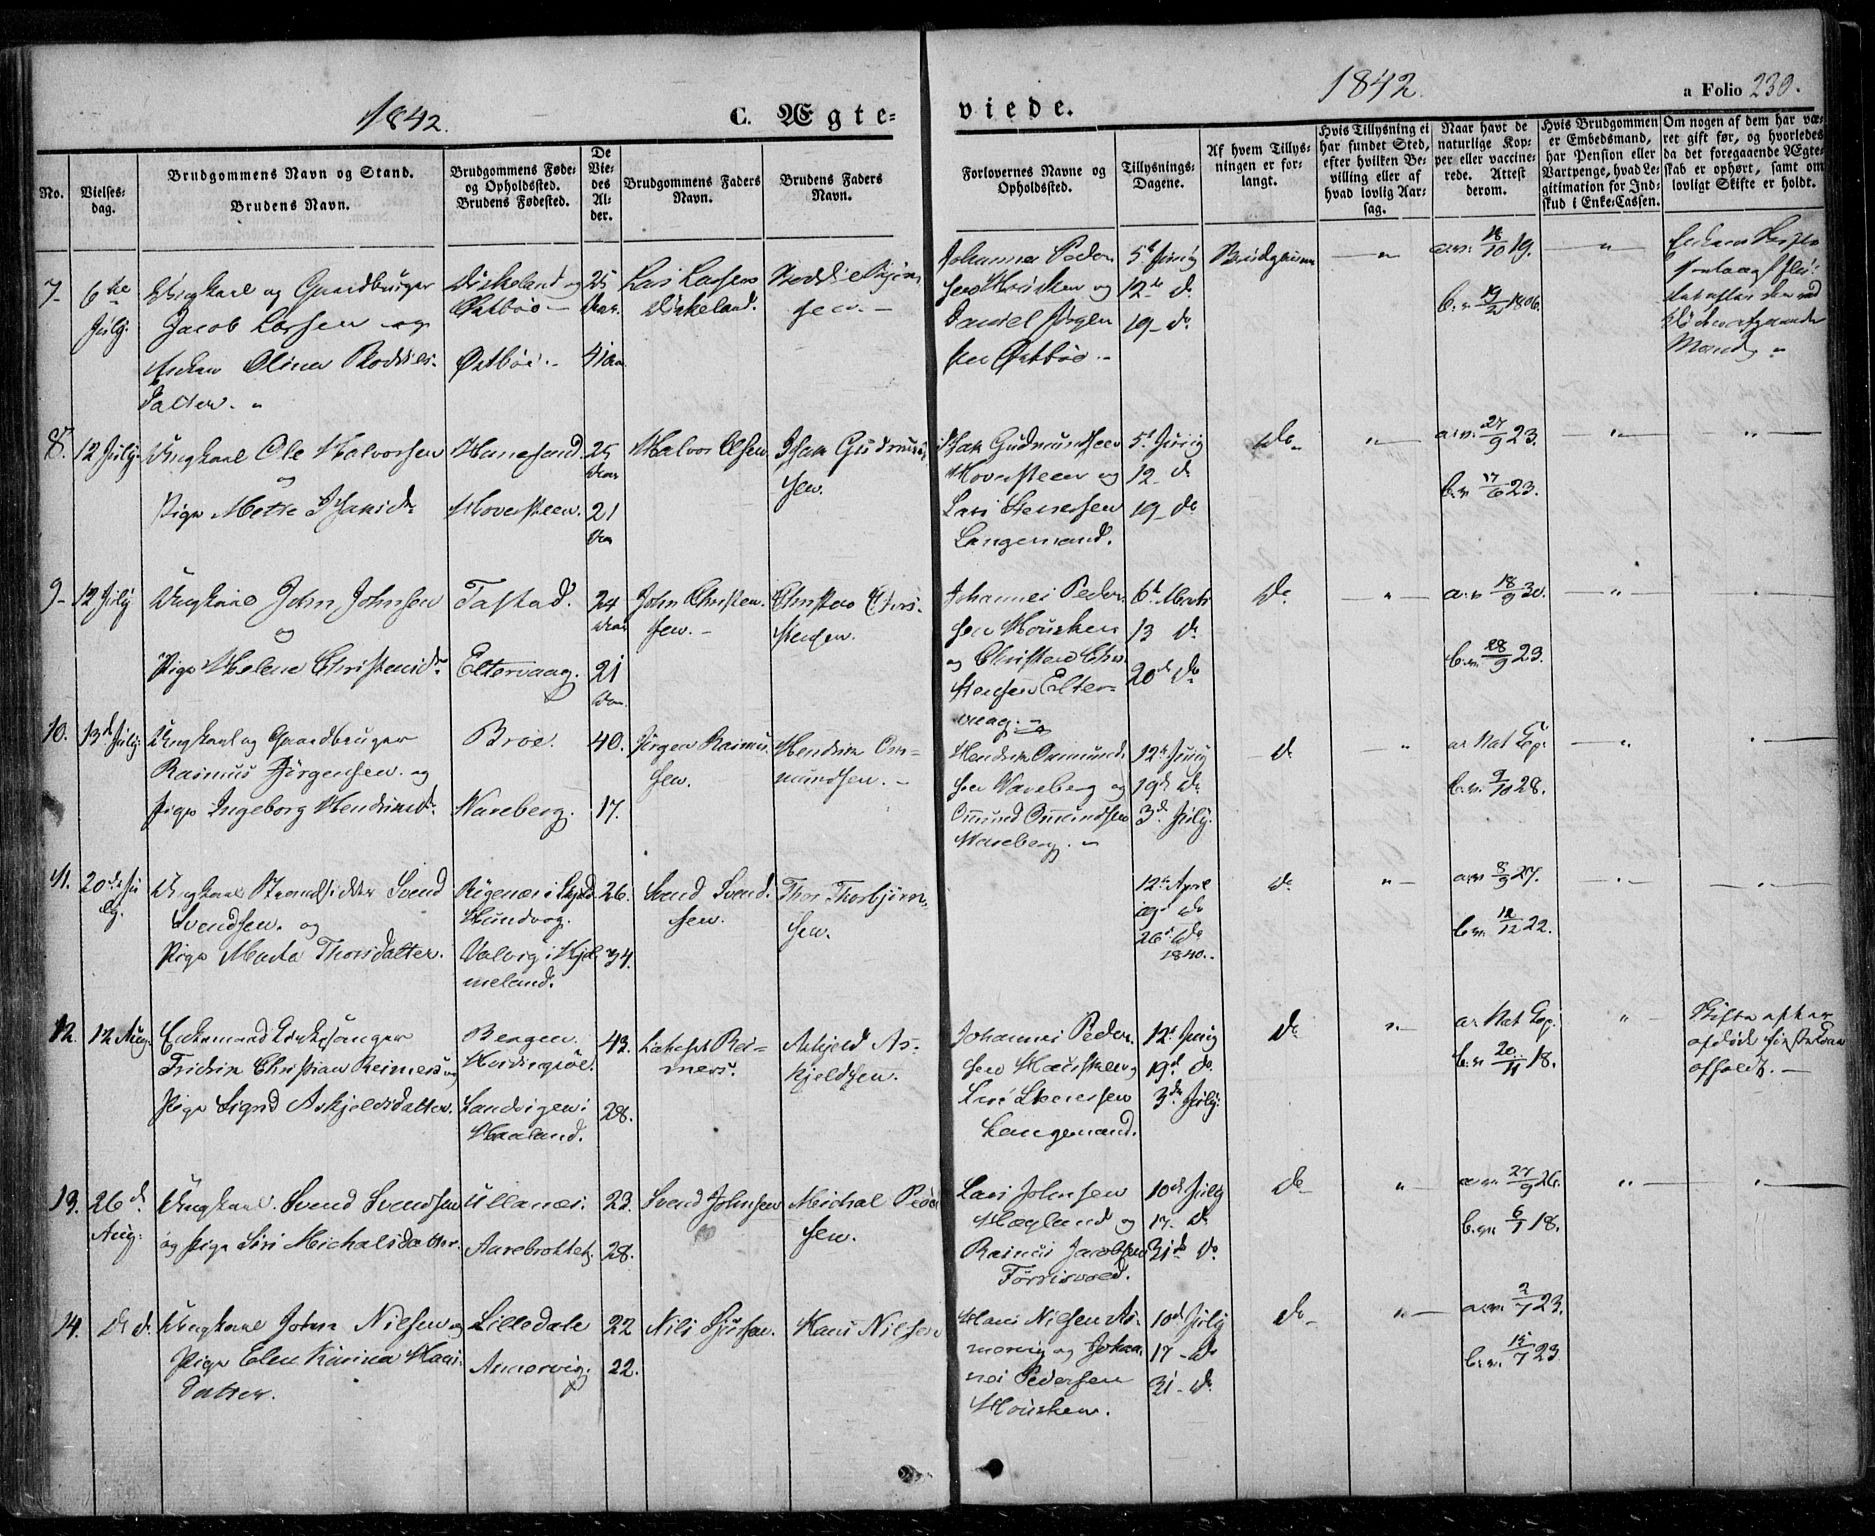 1842.
C. Ægte-
viede.
1842.
a Folio 230.
No.
Vielses-
dag.
Brudgommens Navn og Stand.
Brudens Navn.
Brudgommens Føde-
og Opholdssted.
Brudens Fødested.
De
Vie-
des
Al-
der.
Brudgommens Faders
Navn.
Brudens Faders
Navn.
Forlovernes Navne og
Opholdssted.
Tillysnings-
Dagene.
Af hvem Tillys-
ningen er for-
langt.
Hvis Tillysning ei
har fundet Sted,
efter hvilken Be-
villing eller af
hvad lovlig Aar-
sag.
Naar havt de
naturlige Kop-
per eller vaccine-
rede. Attest
derom.
Hvis Brudgommen
er Embedsmand,
har Pension eller
Vartpenge, hvad Le-
gitimation for Ind-
skud i Enke-Cassen.
Om nogen af dem har væ-
ret gift før, og hvorledes
da det foregaaende Ægte-
skab er ophørt, samt om
lovligt Skifte er holdt.
7. 6te
July
Ungkarl og Gaardbruger
Jacob Larsen og
Enken Olina
datter.
Østbøe
Østbøe
25
Aar.
41 Aar
Lars Larsen
Johannes Peder-
sen Housken og
Daniel Jørgen-
sen Østbøe
5t Juny
12te do
19 do
Brudgommen
a.v. 18/10 19.
b.v. 19/2 1806.
Mand
8. 12 July
Ungkarl Ole Halvorsen
og
Pige Metre Isaksdr
Hanesand
Hoversteen.
25
Aar
21
Aar
Halvor Olsen
Isak Gudmund-
sen.
Isak Gudmundsen
Hoversteen og
Lars Stenersen
Langemand.
5t Juny
12 do
19 do
do
a.v. 27/9 23.
b.v. 17/6 23.
9 12 July
Ungkarl John Johnsen
og
Pige Helene Christensdr
Tastad.
Eltervaag.
24
Aar
21
Aar
John Christen-
sen.
Christen Chri-
stensen.
Johannes Peder-
sen Housken
og Christen Chri-
stensen Elter-
vaag.
6t Marts
13 do
20d do
do
a.v. 18/9 30.
b.v. 28/9 23.
10. 13d July
Ungkarl og Gaardbruger
Rasmus Jørgensen og
Pige Ingeborg Hendriksdr
Broe.
Nareberg.
40.
17.
Jørgen Rasmus-
sen.
Hendrik Om-
mundsen.
Hendrik Ommund-
sen Nareberg og
Ommund Ommundsen
Nareberg.
12te Juny
19de do
3de July.
do
a. Nat. Cop.
b.v. 9/10 28.
11. 20de Ju-
ly.
Ungkarl Strandsidder Svend
Svendsen og
Pige Marta Thorsdatter.
Hundvog.
Valvig i Hjel-
meland.
26.
34.
Svend Svend-
sen.
Thor Thorbjørn-
sen.
12te April
19d do
26d do
1840.
do
a.v. 8/9 27.
b.v. 12/12 22.
12. 12 Aug.
Enkemand Kirkesanger
Fridrik Christian Reimers og
Pige Sigrid Askjeldsdatter.
Bergen.
Sandvigen i
Haaland.
43.
28.
Rei-
mers.
Askjeld As-
kjeldsen.
Johannes Peder-
sen Housken og
Lars Stenersen
Langemand.
12te Juny
19d do
3de July.
do
a. Nat. Cop.
b.v. 20/11 18.
Skifte efter
afdøde
afholdt.
13. 26d
Aug.
Ungkarl Svend Svendsen
og Pige Siri Michalsdatter.
Ullanæs.
Aarebrottet.
23.
28.
Svend Johnsen
Michal Peder-
sen.
Lars Johnsen
Hægland og
Rasmus Jacobsen
10de July
17. do
31de do
do
a.v. 27/9 26.
b.v. 6/1 18.
14. do do
Ungkarl John Nilsen og
Pige Elen Karina Hans-
datter.
Lilledale
Ammervig.
22
22.
Nils
Hans Nilsen
Hans Nilsen Am-
mervig og Johan-
nes Pedersen
Housken.
10de July
17 do
31 do
do
a.v. 2/7 23.
b.v. 15/7 23